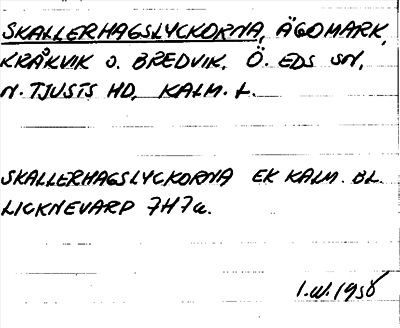 SKALLERHAGSLYCKORNA, ÄGOMARK,
KRÅKVIK O. BREDVIK, Ö. EDS SN,
N. TJUSTS HD, KALM. L.
SKALLERHAGSLYCKORNA EK KALM. BL.
LICKNEVARP 7H7a.
I.W. 1958